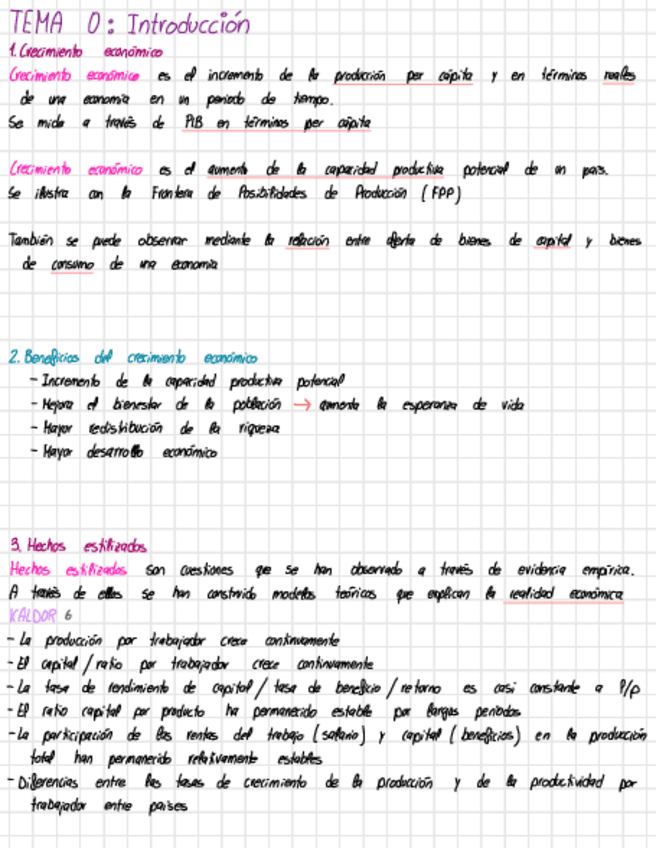 TEMA 0: Introducción
1. Crecimiento económico
Crecimiento económico es el incremento de la producción per cápita y en términos reales
de una economía en un periodo de tiempo.
Se mide a través de PIB en términos per cápita
Crecimiento económico es el aumento de la capacidad productiva potencial de un país.
Se ilustra con la Frontera de Posibilidades de Producción (FPP)
También se puede observar mediante la relación entre oferta de bienes de capital y bienes
de consumo de una economía
2. Beneficios del crecimiento económico
- Incremento de la capacidad productiva potencial
- Mejora el bienestar de la población → aumenta la esperanza de vida
- Mayor redistribución de la riqueza
- Mayor desarrollo económico
3. Hechos estilizados
Hechos estilizados son cuestiones que se han observado a través de evidencia empírica.
A través de ellos se han construido modelos teóricos que explican la realidad económica
KALDOR 6
- La producción por trabajador crece continuamente
- El capital / ratio por trabajador crece continuamente
- La tasa de rendimiento de capital / tasa de beneficio / retorno es casi constante a l/p
- El ratio capital por producto ha permanecido estable por largos periodos
- La participación de las rentas del trabajo (salario) y capital (beneficios) en la producción
total han permanecido relativamente estables
- Diferencias entre las tasas de crecimiento de la producción y de la productividad por
trabajador entre países